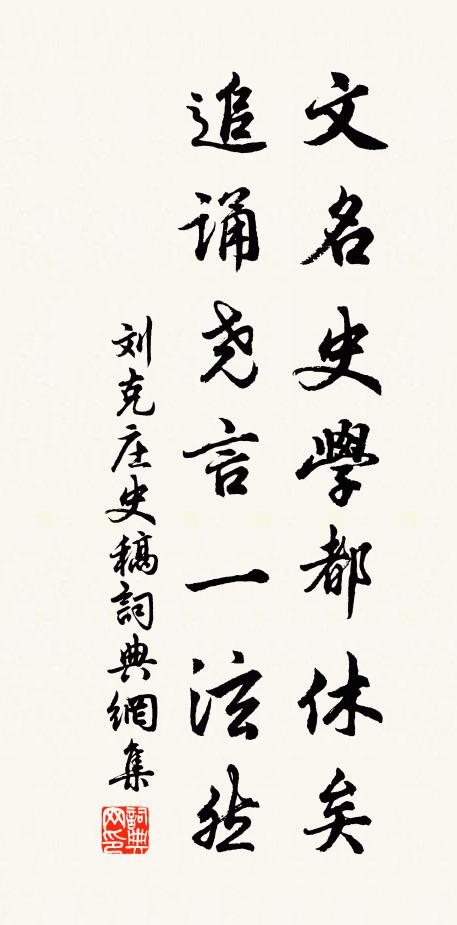 文名史學都休矣
追誦尧言一泫然
刘克庄史稿詞典網集
詞典網印